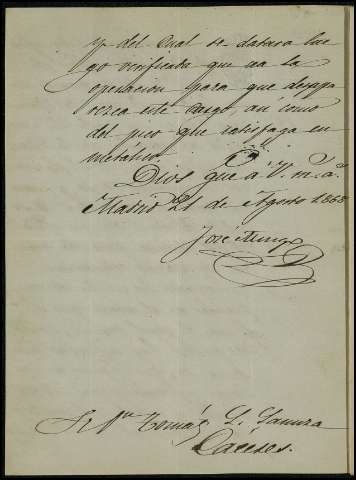 y del cual se datara lue
go verificada que sea la
operacion para que desapa
rezca este cargo, asi como
del pico que satisfaga en
metálico.
Dios gue a V. m. a.
Madrid 21 de Agosto 1868
José
Sr Dn Tomás G.
Caceres.